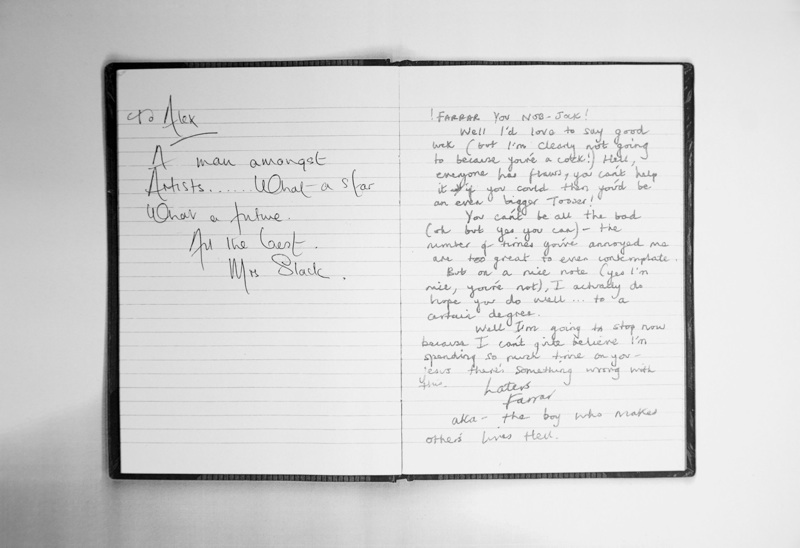 To Alex
A man amongst
Artists...... What a star
What a future.
All the best.
Mrs Slack.
! FARRAR YOU NOB-JOCK!
Well I'd love to say good
luck (but I'm clearly not going
to because you're a cock!) Hell,
everyone has flaws, you can't help
it if you could then you'd be
an even bigger Tosser!
You can't be all the bad
(oh but yes you can) - the
number of times you've annoyed me
are too great to even contemplate.
But on a nice note (yes I'm
nice, you're not), I actually do
hope you do well ... to a
certain degree.
Well I'm going to stop now
because I can't quite believe I'm
spending so much time on you -
there's something wrong with
Laters
Farrar
aka - the boy who makes
others lives Hell.